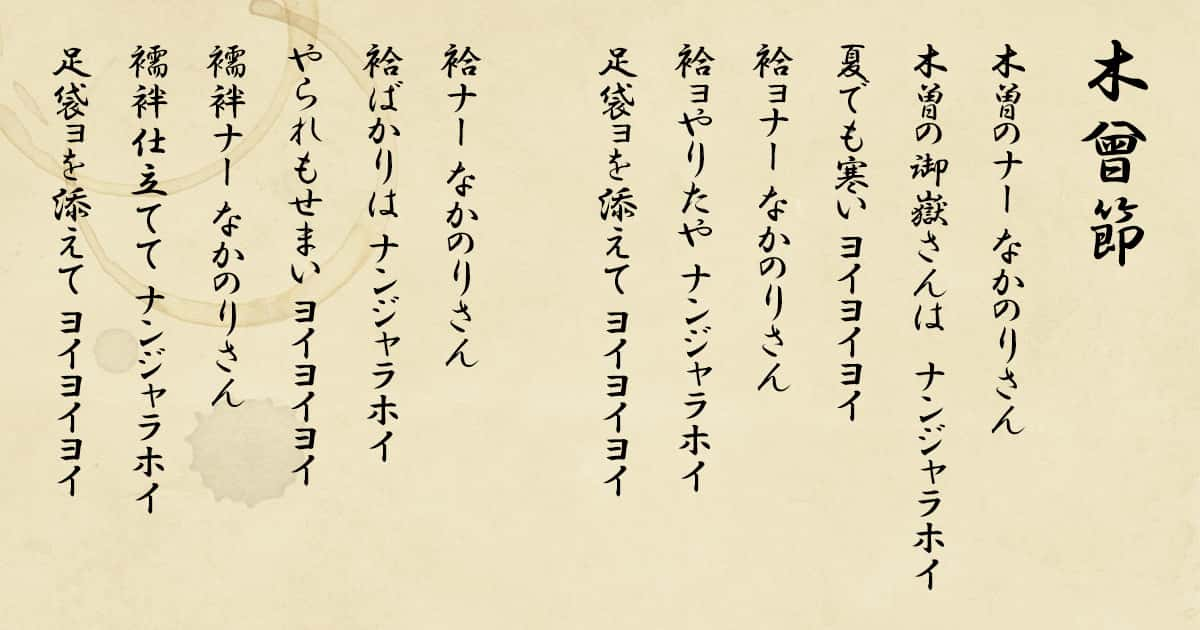 木曾節
木曽のナー なかのりさん
木曽の御嶽さんは ナンジャラホイ
夏でも寒い ヨイヨイヨイ
袷ヨナー なかのりさん
袷ヨやりたや ナンジャラホイ
足袋ヨを添えて ヨイヨイヨイ
袷ナー なかのりさん
袷ばかりは ナンジャラホイ
やられもせまい ヨイヨイヨイ
襦袢ナー なかのりさん
襦袢仕立てて ナンジャラホイ
足袋ヨを添えて ヨイヨイヨイ